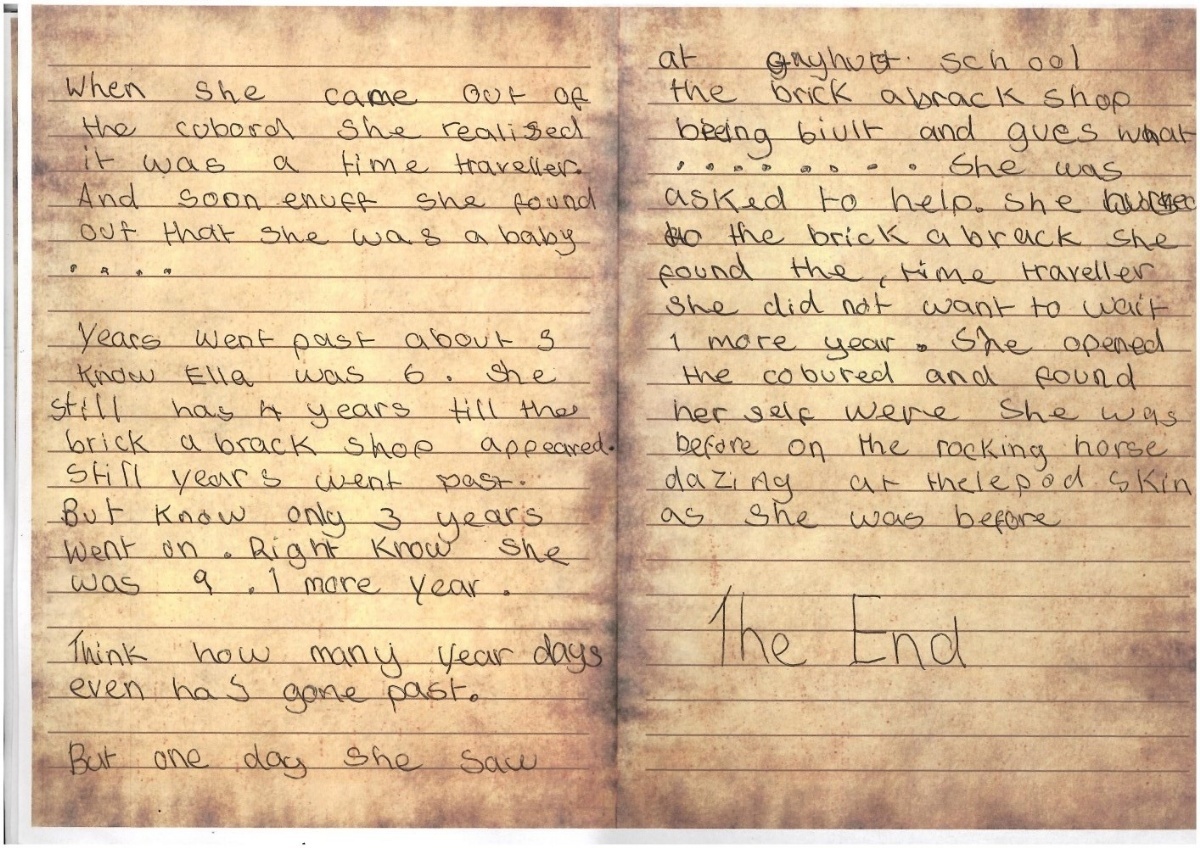 When she came out of
the cubord she realised
it was a time traveller.
And soon enuff she found
out that she was a baby
....
Years went past about 3
Know Ella was 6. She
still has 4 years till the
brick a brack shop appeared.
Still years went past.
But know only 3 years
went on. Right know she
was 9. 1 more year.
Think how many year days
even has gone past.
But one day she saw
at school
the brick abrack shop
being biult and gues what
......... She was
asked to help. She
to the brick a brack she
found the, time traveller
she did not want to wait
1 more year. She opened
the cobured and found
her self were she was
before on the rocking horse
dazing at the lepod skin
as she was before
The End